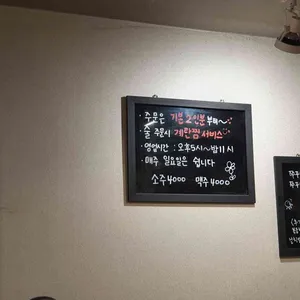 · 주문은 기본 2인분 부터~
· 술 주문시 계란찜 서비스
· 영업시간 : 오후5시~밤11시
· 매주 일요일은 쉽니다
소주 4000 맥주 4000